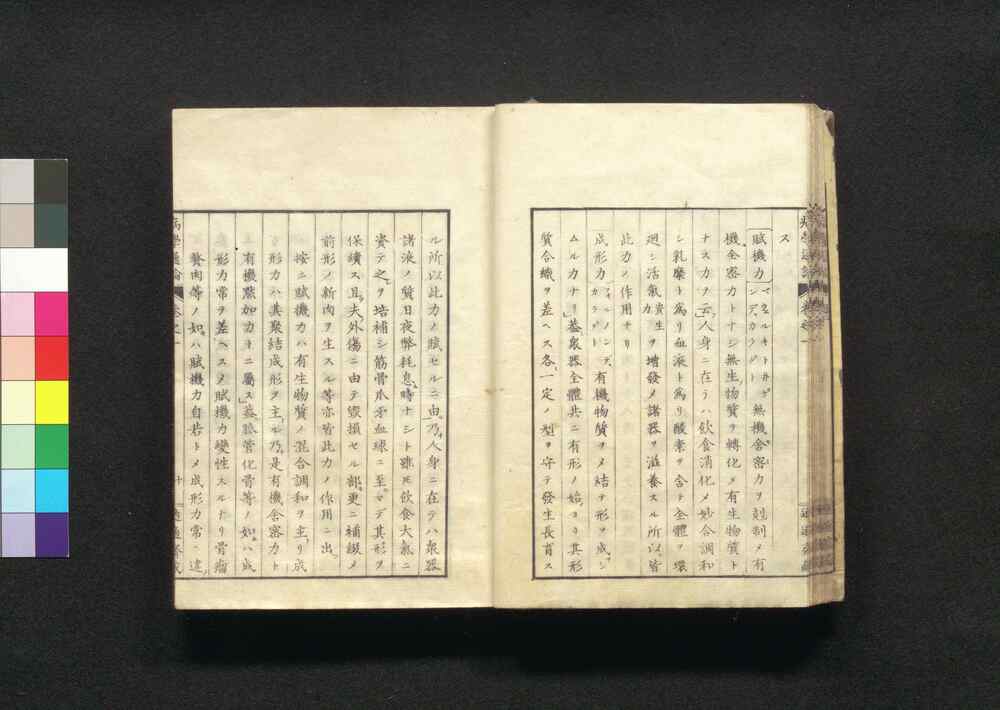 ス
賦機力 無機舍密力ヲ剋制メ有
機舍密力トナシ無生物質ヲ轉化メ有生物質ト
ナス力ヲ云人身ニ在ラハ飲食消化メ妙合調和
シ乳糜ト爲リ血液ト爲リ酸素ヲ含ト全體ヲ環
廻シ活氣力ヲ増發メ諸器ヲ滋養スル所以皆
此力ノ作用ナリ
成形力 有機物質ヲメ結テ形ヲ成シ
ムルカナリ蓋衆器全體共ニ有形ノ始ヨリ其形
質合織ヲ差ヘス各一定ノ型ヲ守テ發生長育ス
ル所以此力ノ賦セルニ由乃人身ニ在テハ衆器
諸液ノ質日夜弊耗息時ナシト雖モ飲食大氣ニ
資テ之ヲ培補シ筋骨爪牙血球ニ至マデ其形ヲ
保續ス且夫外傷ニ由テ毀損セル部更ニ補綴メ
前形ノ新肉ヲ生スル等亦皆此力ノ作用ニ出
按ニ賦機力ハ有生物質ノ混合調和ヲ主リ成
形力ハ其聚結成形ヲ主ル乃是有機舍密力ト
有機黙加力ニ屬ス蓋膸管化骨等ノ如ハ成
形力常ヲ差ヘスメ賦機力變性スルナリ骨瘤
贅肉等ノ如ハ賦機力自若トメ成形力常ニ違
病學通論 卷之一